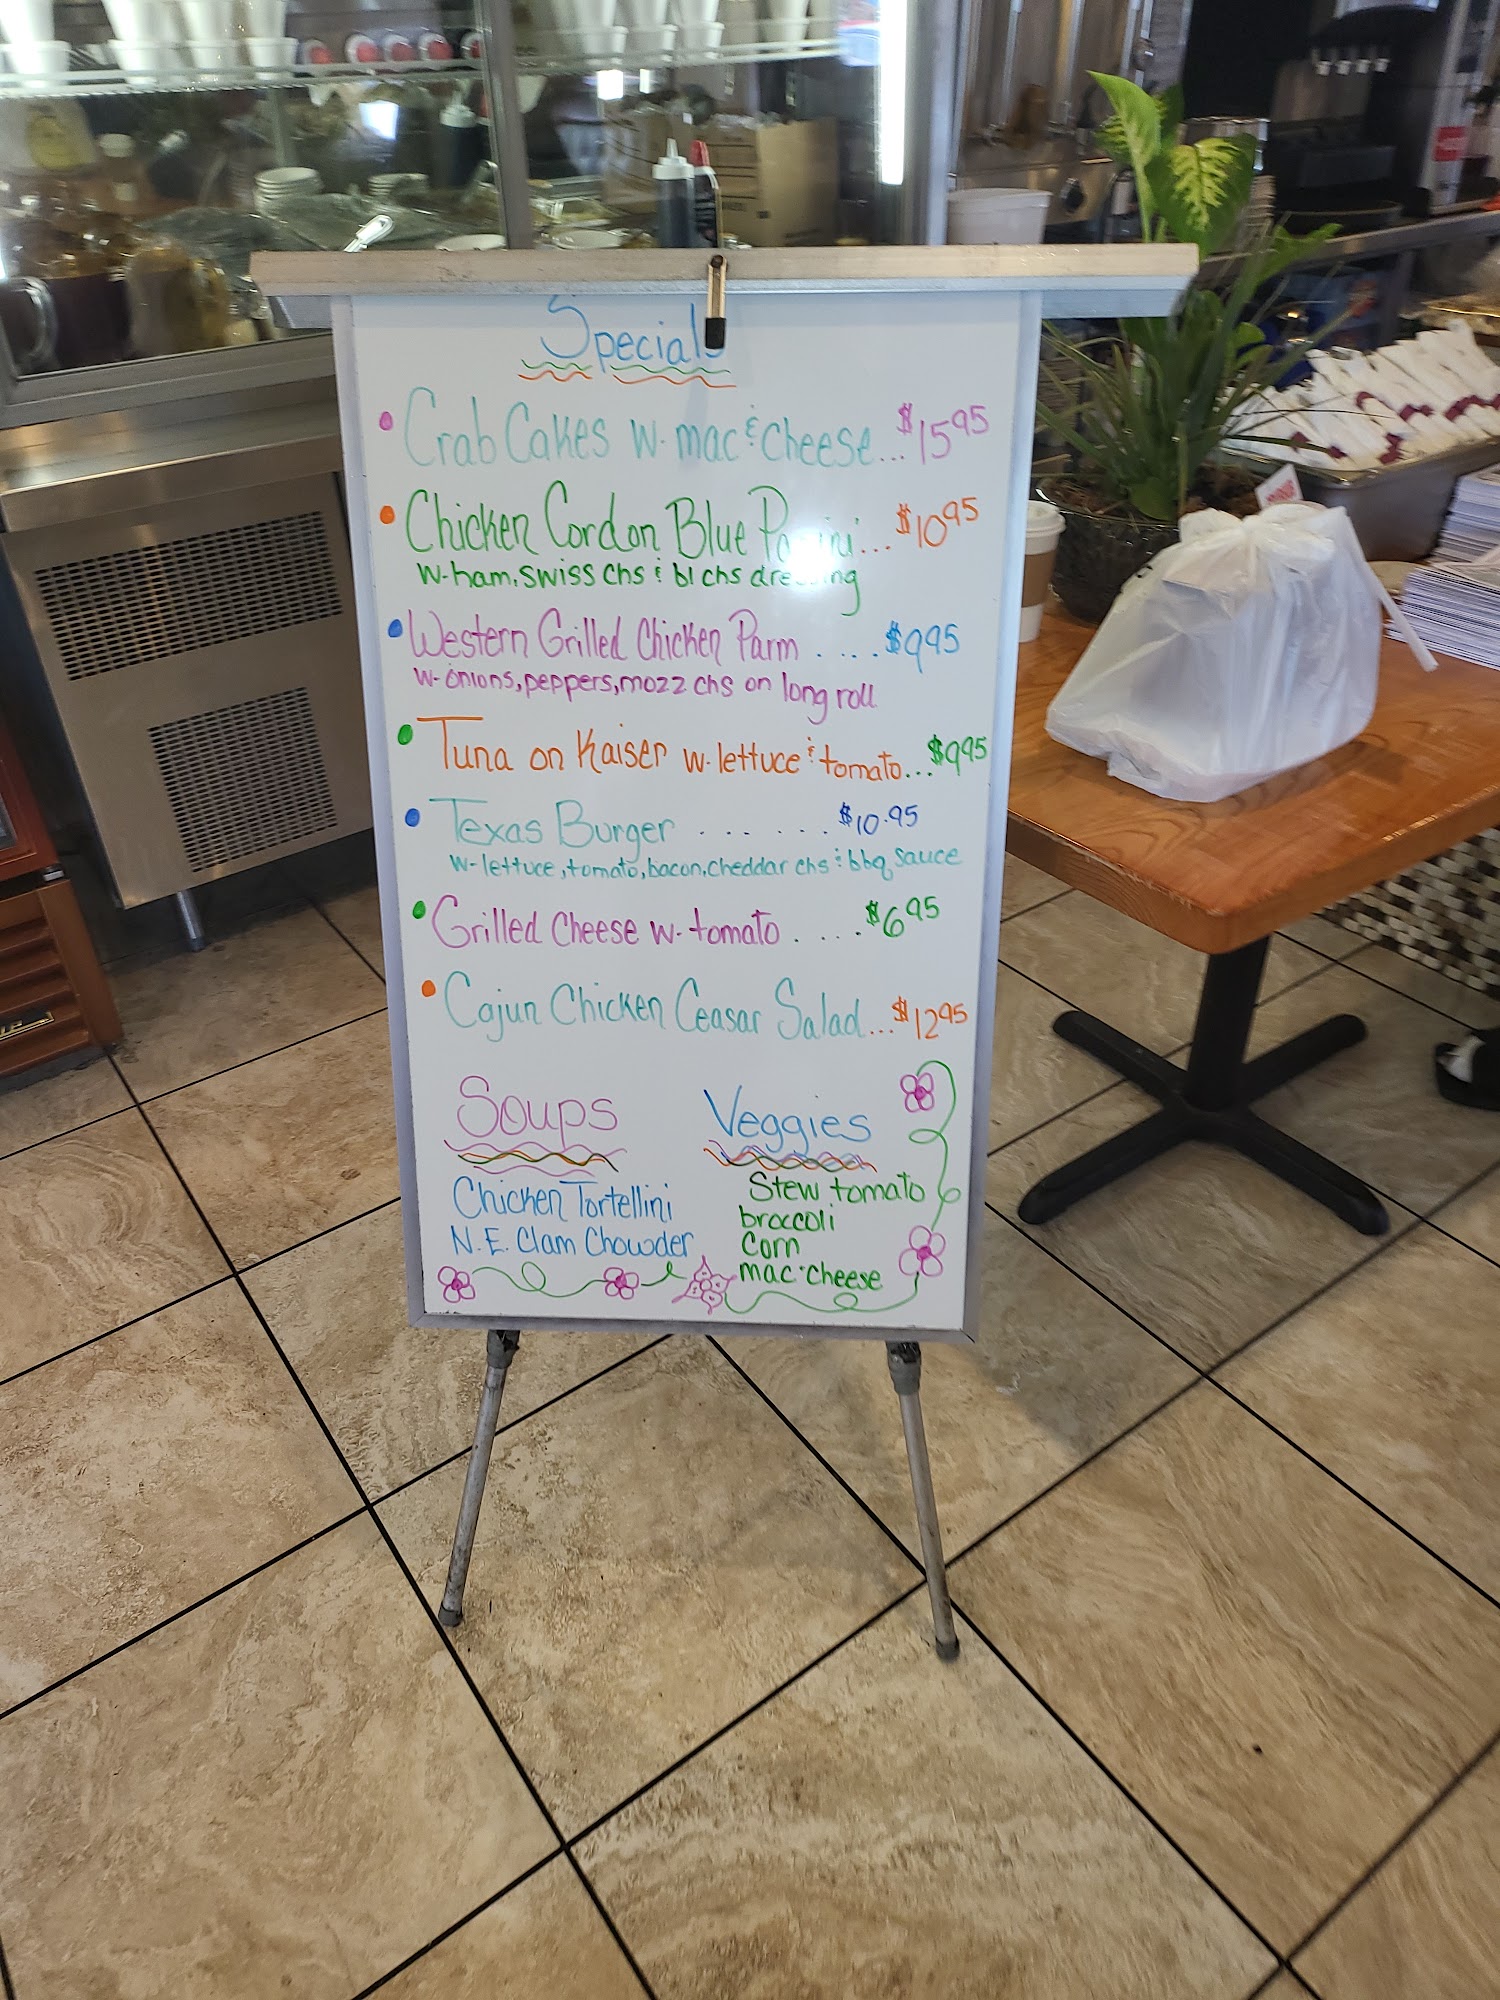 Specials
• Crab Cakes w. mac & cheese... $15.95
• Chicken Cordon Blue Panini... $10.95
w-ham, swiss chs & bl chs dressing
• Western Grilled Chicken Parm .... $9.95
w-onions, peppers, mozz chs on long roll
• Tuna on Kaiser w. lettuce & tomato... $9.95
• Texas Burger ....... $10.95
w-lettuce, tomato, bacon, cheddar chs & bbq sauce
• Grilled Cheese w. tomato .... $6.95
• Cajun Chicken Ceasar Salad... $12.95
Soups
Chicken Tortellini
N.E. Clam Chowder
Veggies
Stew tomato
broccoli
corn
mac·cheese